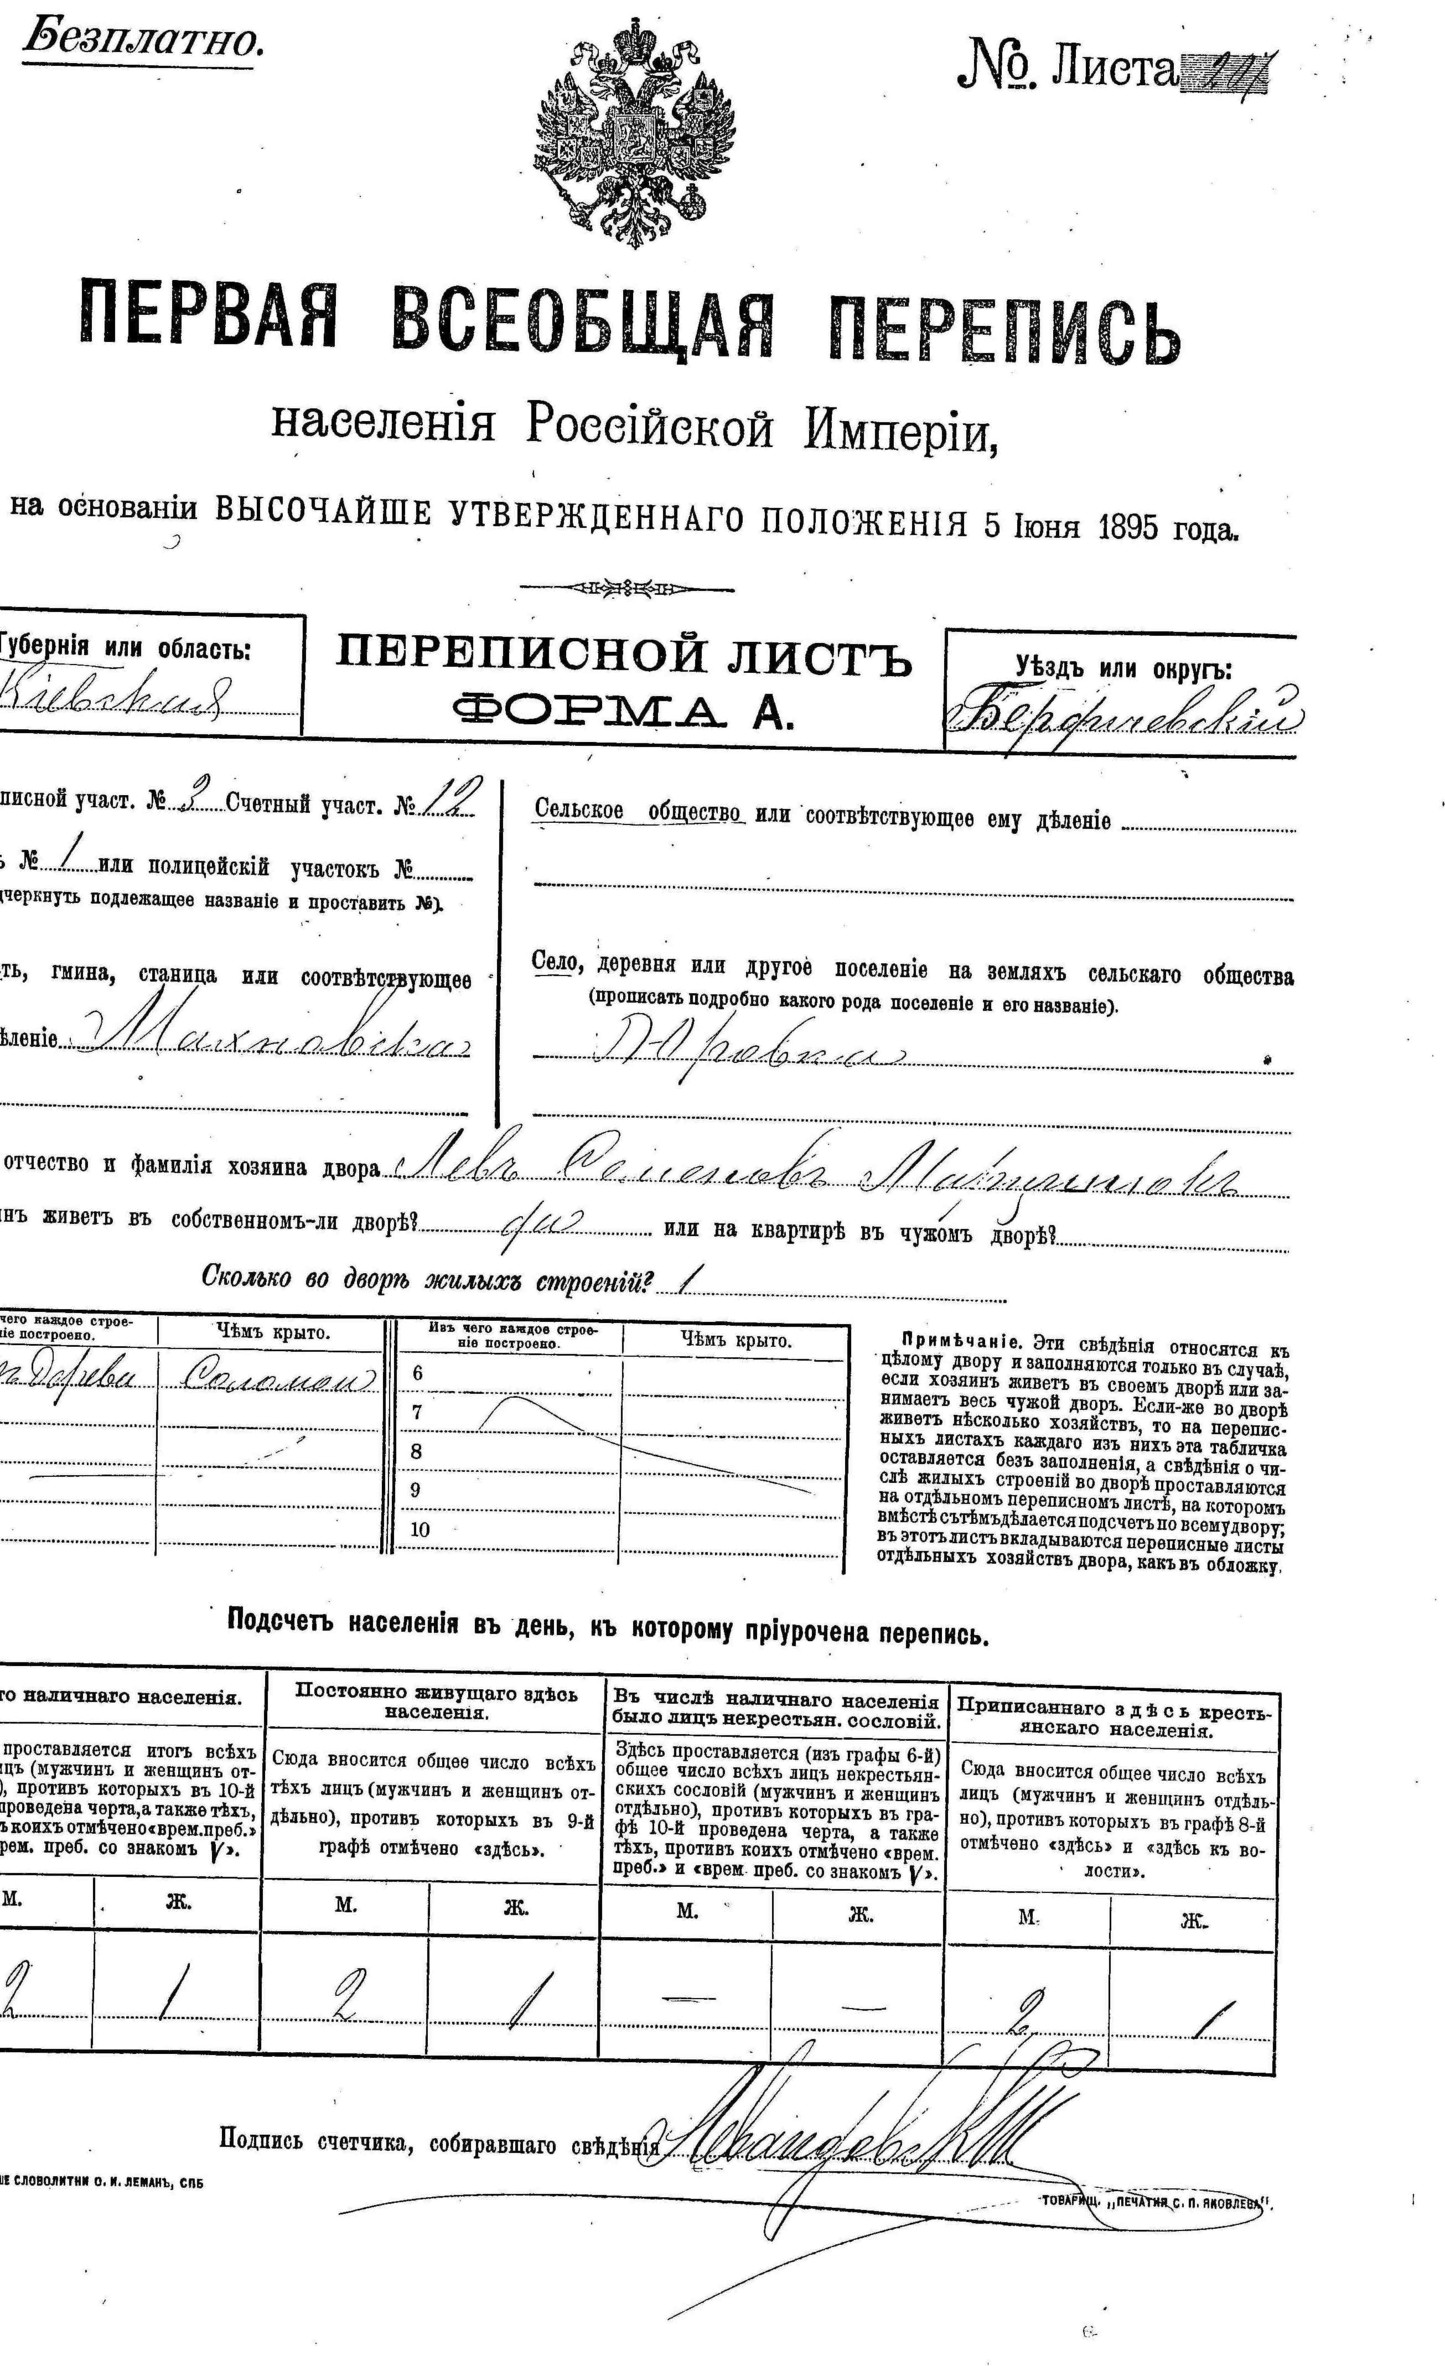 Безплатно.
№. Листа
ПЕРВАЯ ВСЕОБЩАЯ ПЕРЕПИСЬ
населенія Россійской Имперіи,
на основаніи ВЫСОЧАЙШЕ УТВЕРЖДЕННАГО ПОЛОЖЕНІЯ 5 Іюня 1895 года.
Губернія или область:
Кіевская
ПЕРЕПИСНОЙ ЛИСТЪ
ФОРМА А.
Уѣздъ или округъ:
Бердичевскій
писной участ. № 3 Счетный участ. № 12
ъ № 1 или полицейскій участокъ №
дчеркнуть подлежащее названіе и проставить №).
ть, гмина, станица или соотвѣтствующее
ѣленіе Махновская
Сельское общество или соотвѣтствующее ему дѣленіе
Село, деревня или другое поселеніе на земляхъ сельскаго общества
(прописать подробно какого рода поселеніе и его названіе).
отчество и фамилія хозяина двора Левъ Семеновъ
инъ живетъ въ собственномъ-ли дворѣ? да или на квартирѣ въ чужомъ дворѣ?
Сколько во дворѣ жилыхъ строеній? 1
чего каждое строе-
ніе построено.
Чѣмъ крыто.
Изъ чего каждое строе-
ніе построено.
Чѣмъ крыто.
Дерева Соломой
6
7
8
9
10
Примѣчаніе. Эти свѣдѣнія относятся къ
цѣлому двору и заполняются только въ случаѣ,
если хозяинъ живетъ въ своемъ дворѣ или за-
нимаетъ весь чужой дворъ. Если-же во дворѣ
живетъ нѣсколько хозяйствъ, то на перепис-
ныхъ листахъ каждаго изъ нихъ эта табличка
оставляется безъ заполненія, а свѣдѣнія о чи-
слѣ жилыхъ строеній во дворѣ проставляются
на отдѣльномъ переписномъ листѣ, на которомъ
вмѣстѣ съ тѣмъ дѣлается подсчетъ по всему двору;
въ этотъ листъ вкладываются переписные листы
отдѣльныхъ хозяйствъ двора, какъ въ обложку.
Подсчетъ населенія въ день, къ которому пріурочена перепись.
го наличнаго населенія.
проставляется итогъ всѣхъ
ицъ (мужчинъ и женщинъ от-
), противъ которыхъ въ 10-й
проведена черта, а также тѣхъ,
ъ коихъ отмѣчено «врем. преб.»
рем. преб. со знакомъ V».
Постоянно живущаго здѣсь
населенія.
Сюда вносится общее число всѣхъ
тѣхъ лицъ (мужчинъ и женщинъ от-
дѣльно), противъ которыхъ въ 9-й
графѣ отмѣчено «здѣсь».
Въ числѣ наличнаго населенія
было лицъ некрестьян. сословій.
Здѣсь проставляется (изъ графы 6-й)
общее число всѣхъ лицъ некрестьян-
скихъ сословій (мужчинъ и женщинъ
отдѣльно), противъ которыхъ въ гра-
фѣ 10-й проведена черта, а также
тѣхъ, противъ коихъ отмѣчено «врем.
преб.» и «врем. преб. со знакомъ V».
Приписаннаго здѣсь кресть-
янскаго населенія.
Сюда вносится общее число всѣхъ
лицъ (мужчинъ и женщинъ отдѣль-
но), противъ которыхъ въ графѣ 8-й
отмѣчено «здѣсь» и «здѣсь къ во-
лости».
М. Ж. М. Ж. М. Ж. М. Ж.
2 1 2 1 — — 2 1
Подпись счетчика, собиравшаго свѣдѣнія
ІЕ СЛОВОЛИТНИ О. И. ЛЕМАНЪ, СПБ
ТОВАРИЩ. „ПЕЧАТНЯ С. П. ЯКОВЛЕВА".